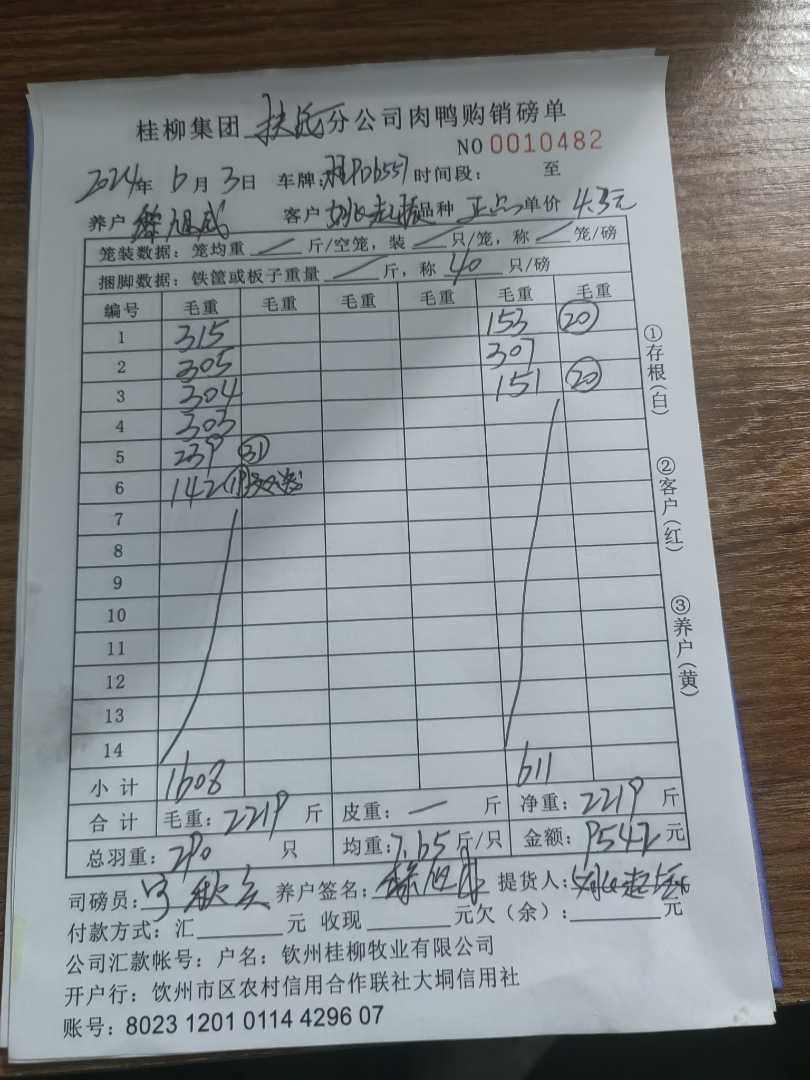 桂柳集团 扶绥分公司肉鸭购销磅单
NO 0010482
2024年 6月 3日 车牌: 桂P06557 时间段: 至
养户 旭成 客户 赵振 品种 正品 单价 4.3元
笼装数据: 笼均重 — 斤/空笼, 装 — 只/笼, 称 — 笼/磅
捆脚数据: 铁筐或板子重量 — 斤, 称 40 只/磅
编号 毛重 毛重 毛重 毛重 毛重 毛重
1 315 153 ⑳
2 305 307
3 304 151 ⑳
4 303
5 239 ㉛
6 142 ⑲
7
8
9
10
11
12
13
14
小计 1608 611
合计 毛重: 2219 斤 皮重: — 斤 净重: 2219 斤
总羽重: 290 只 均重: 7.65斤/只 金额: 9542元
司磅员: 养户签名: 提货人:
付款方式: 汇 元 收现 元欠(余): 元
公司汇款帐号: 户名: 钦州桂柳牧业有限公司
开户行: 钦州市区农村信用合作联社大垌信用社
账号: 8023 1201 0114 4296 07
①存根(白)
②客户(红)
③养户(黄)